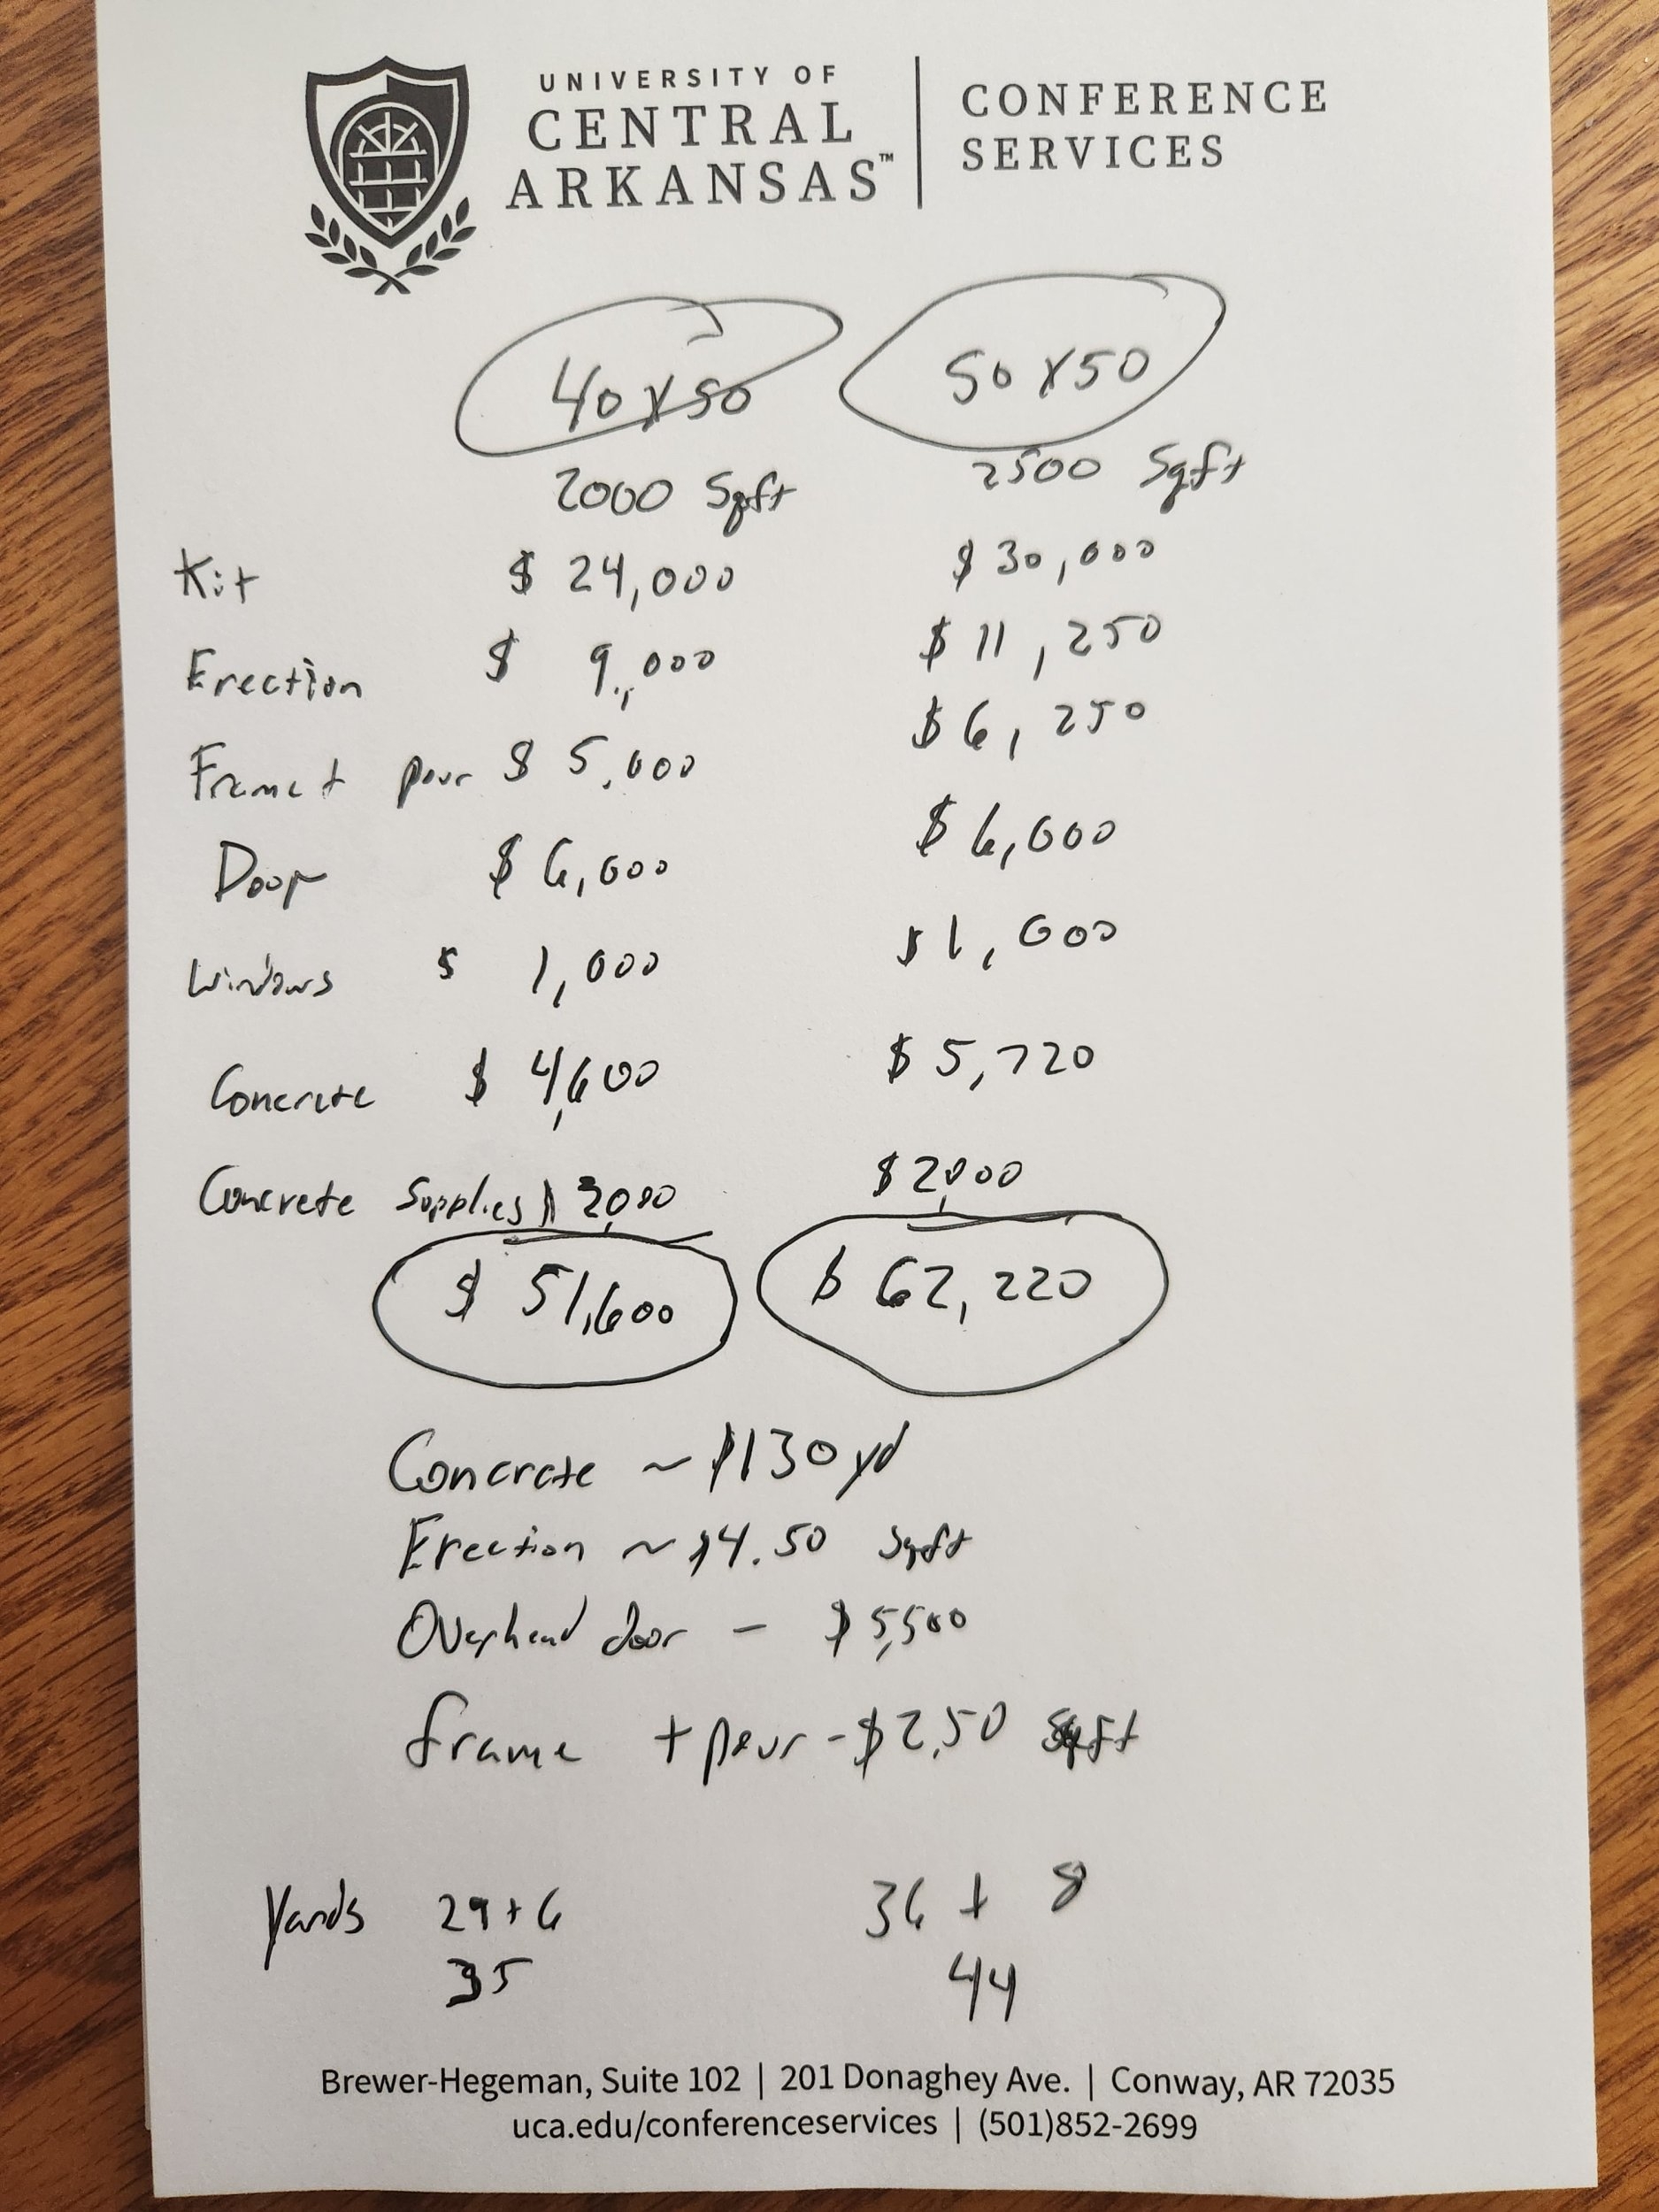 UNIVERSITY OF
CENTRAL
ARKANSAS™
CONFERENCE
SERVICES
40 x 50 50 x 50
2000 Sqft 2500 Sqft
Kit $ 24,000 $ 30,000
Erection $ 9,000 $ 11,250
Frame + pour $ 5,000 $ 6,250
Door $ 6,000 $ 6,000
Windows $ 1,000 $ 1,000
Concrete $ 4,600 $ 5,720
Concrete Supplies $ 2,000 $ 2,000
$ 51,600 $ 62,220
Concrete ~ $130 yd
Erection ~ $4.50 Sqft
Overhead door - $ 5,500
frame + pour - $2.50 Sqft
Yards 29 + 6 36 + 8
35 44
Brewer-Hegeman, Suite 102 | 201 Donaghey Ave. | Conway, AR 72035
uca.edu/conferenceservices | (501)852-2699